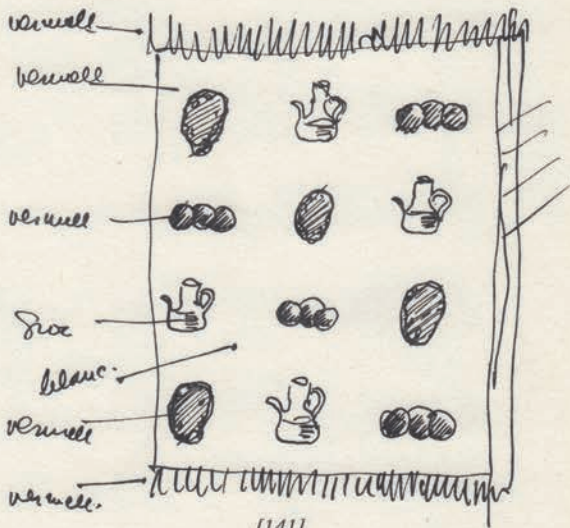 vermell
vermell
vermell
Groc
blanc.
vermell
vermell.
[141]